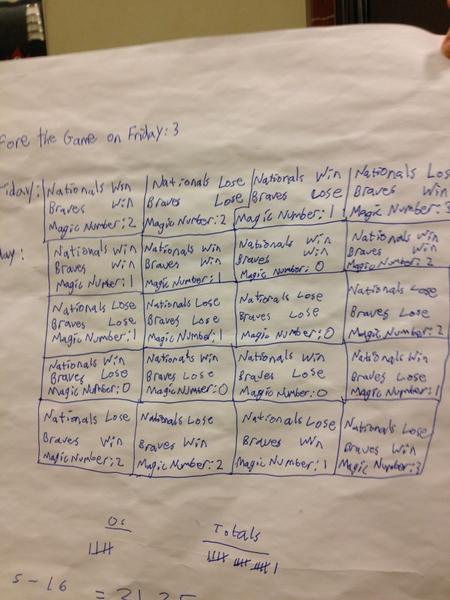 fore the Game on Friday: 3
riday: Nationals Win Nationals Lose Nationals Win Nationals Los
Braves Win Braves Lose Braves Lose Braves Win
Magic Number: 2 Magic Number: 2 Magic Number: 1 Magic Number: 3
day: Nationals Win Nationals Win Nationals Win Nationals Win
Braves Win Braves Win Braves Win Braves Win
Magic Number: 1 Magic Number: 1 Magic Number: 0 Magic Number: 2
Nationals Lose Nationals Lose Nationals Lose Nationals Lose
Braves Lose Braves Lose Braves Lose Braves Lose
Magic Number: 1 Magic Number: 1 Magic Number: 0 Magic Number: 2
Nationals Win Nationals Win Nationals Win Nationals Win
Braves Lose Braves Lose Braves Lose Braves Lose
Magic Number: 0 Magic Number: 0 Magic Number: 0 Magic Number: 1
Nationals Lose Nationals Lose Nationals Lose Nationals Lose
Braves Win Braves Win Braves Win Braves Win
Magic Number: 2 Magic Number: 2 Magic Number: 1 Magic Number: 3
0s Totals
5-16 = 31.25